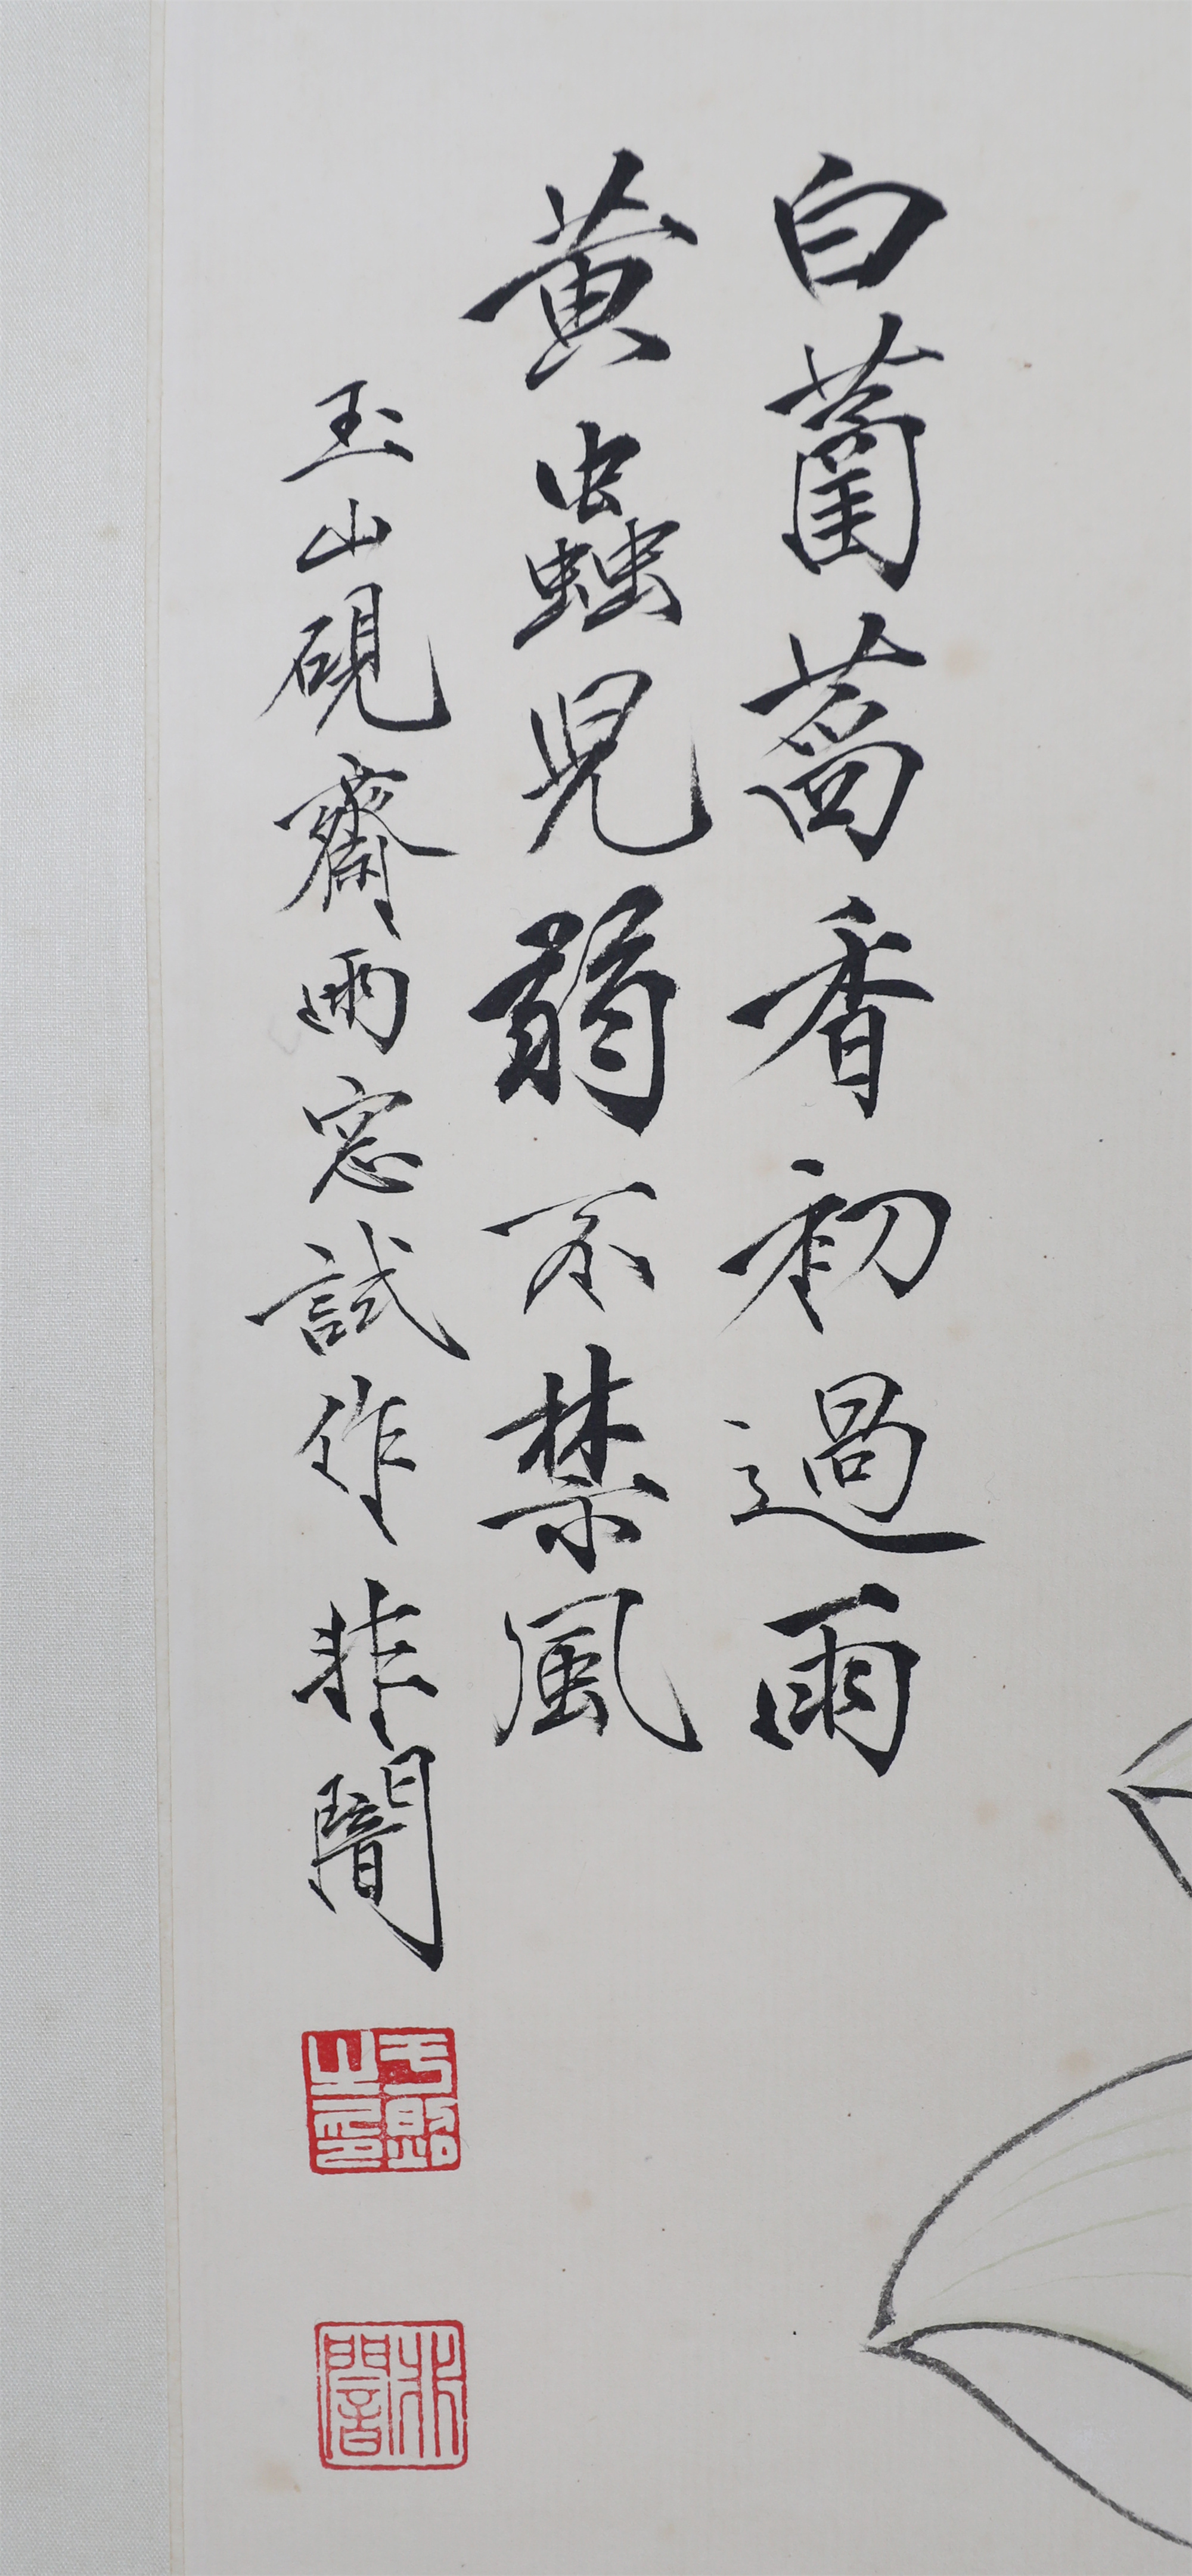 白菡萏香初過雨
黄蟲兒弱不禁風
玉山硯齋雨窓試作非闇
于照之印
非闇